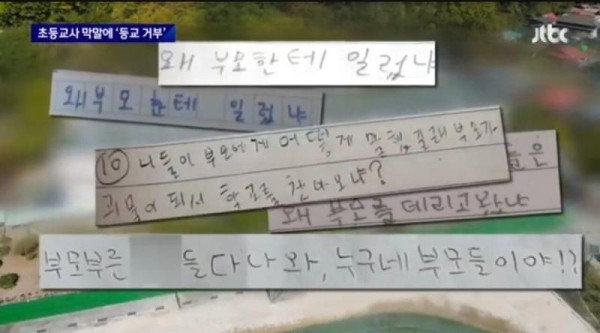 초등교사 막말에 '등교 거부'
jtbc
왜 부모한테 일렀냐
왜 부모한테 일렀냐
⑩ 니들이 부모에게 어떻게 말했길래 부모가
괴물이 되서 학교를 찾아오냐?
들은
왜 부모를 데리고왔냐
부모부른 들 다 나와, 누구네 부모들이야!?